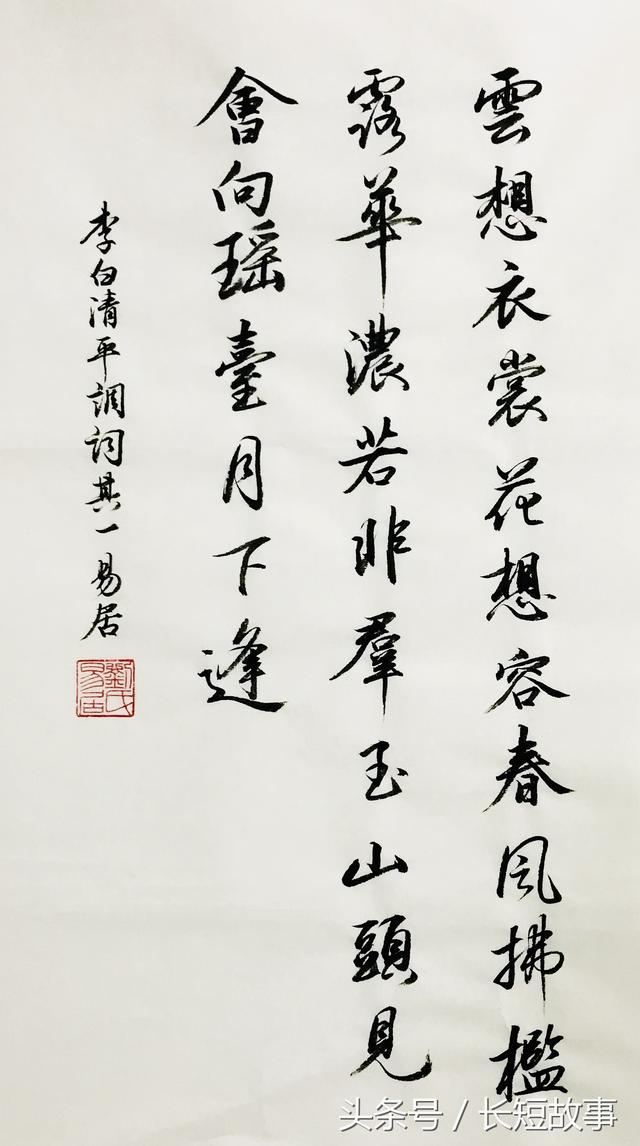 雲想衣裳花想容春風拂檻
露華濃若非羣玉山頭見
會向瑶臺月下逢
李白清平調詞其一易居
劉氏易居
头条号／长短故事